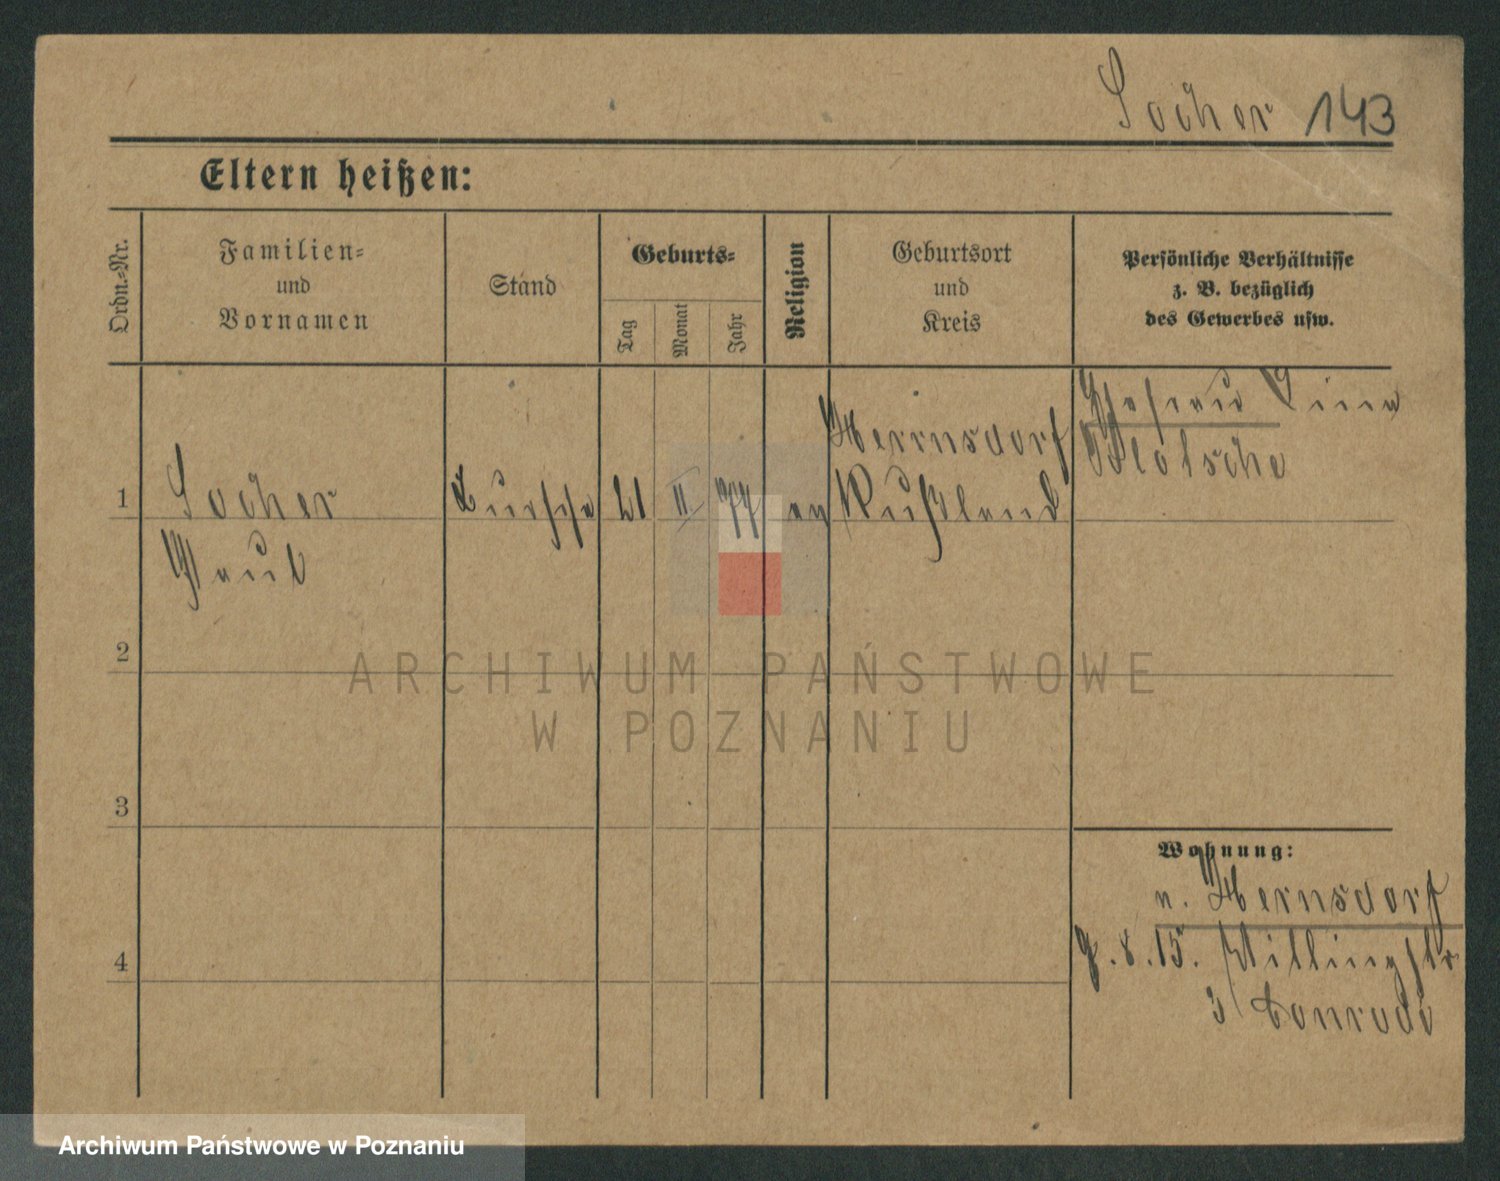 Socher 143
Eltern heißen:
Ordn.-Nr.
Familien-
und
Vornamen
Stand
Geburts-
Tag
Monat
Jahr
Religion
Geburtsort
und
Kreis
Persönliche Verhältnisse
z. B. bezüglich
des Gewerbes usw.
1
Socher
Paul
21 II 77 ev
Herrnsdorf
Rußland
Ehefrau
2
3
4
Wohnung:
n. Hernsdorf
8.15.
3
ARCHIWUM PAŃSTWOWE
W POZNANIU
Archiwum Państwowe w Poznaniu